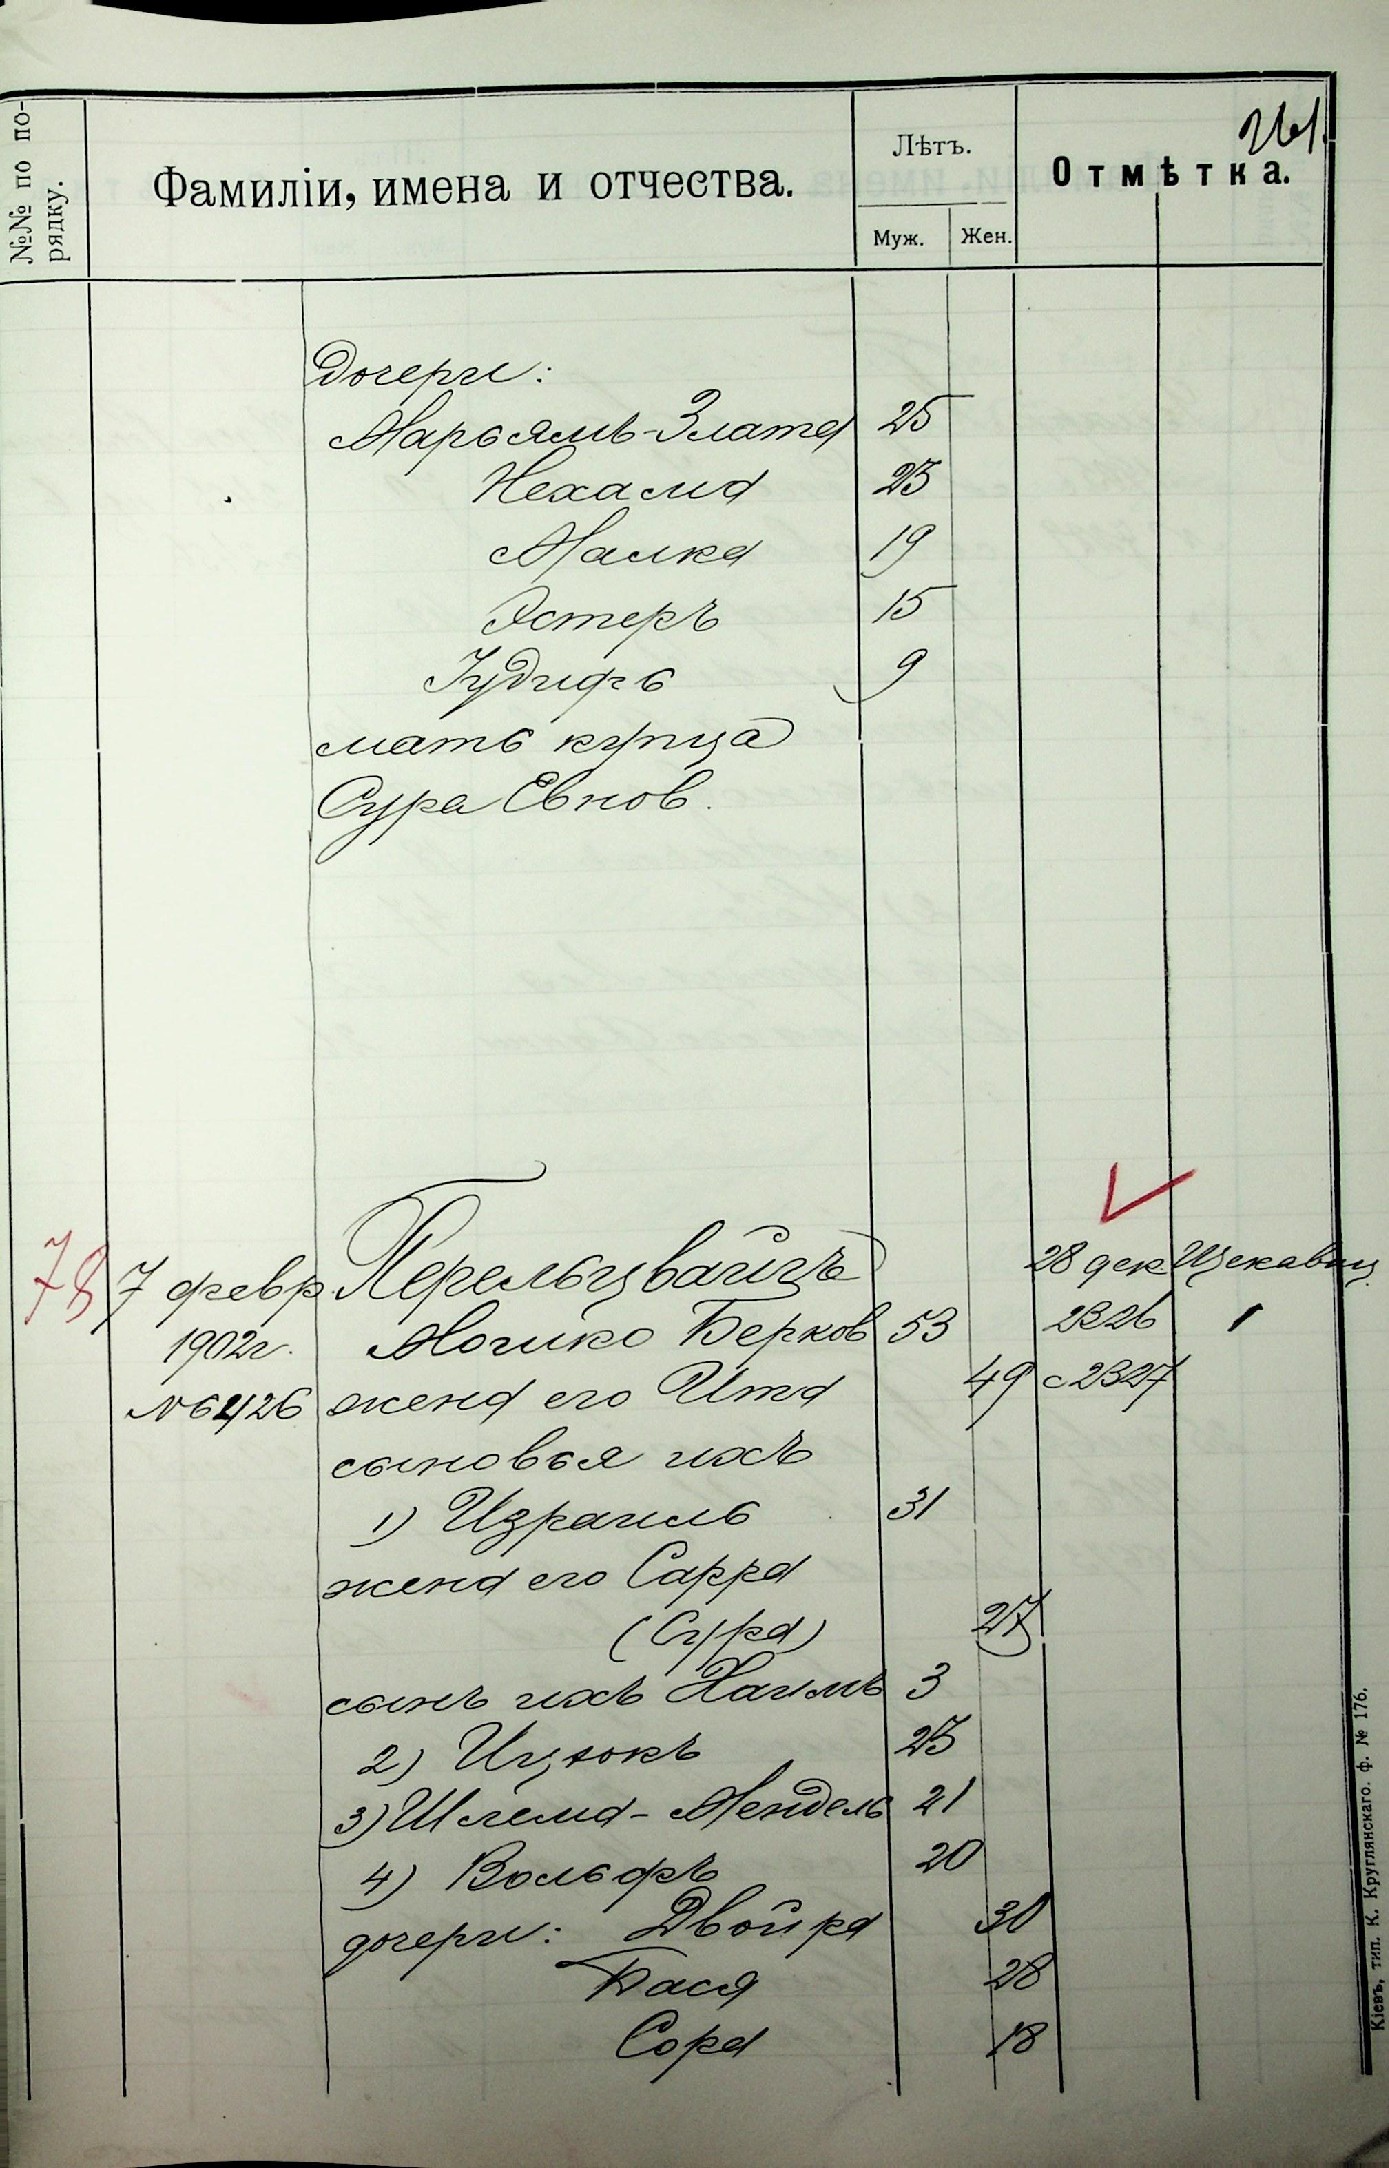 261.
№№ по по-
рядку.
Фамиліи, имена и отчества.
Лѣтъ.
Муж.
Жен.
Отмѣтка.
Дочери:
Марьямъ-Злата 25
Нехама 23
Малка 19
Эстеръ 15
Іудифь 9
мать купца
Сура Евнов.
78 7 февр. Перельцвайгъ 28 дек Щекавиц
1902 г. Мошко Берков 53 2326
№ 6426 жена его Ита 49 с 2327
сыновья ихъ
1) Израиль 31
жена его Сарра
(Сура) 27
сынъ ихъ Хаимъ 3
2) Ицхокъ 23
3) Шлема-Мендель 21
4) Вольфъ 20
дочери: Двойра 30
Бася 28
Сора 18
Кіевъ, тип. К. Круглянскаго. ф. № 176.